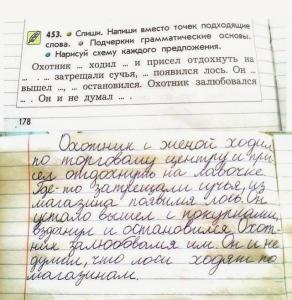 453. Спиши. Напиши вместо точек подходящие
слова. Подчеркни грамматические основы.
Нарисуй схему каждого предложения.
Охотник ... ходил ... и присел отдохнуть на
... . ... затрещали сучья, ... появился лось. Он ...
вышел ..., ... остановился. Охотник залюбовался
... . Он и не думал ... .
178
Охотник с женой ходил
по торговому центру и при
сел отдохнуть на лавочке.
Где-то затрещали сучья, из
магазина появился лось. Он
устало вышел с покупками,
вздохнул и остановился. Охот-
ник залюбовался им. Он и не
думал, что лоси ходят по
магазинам.